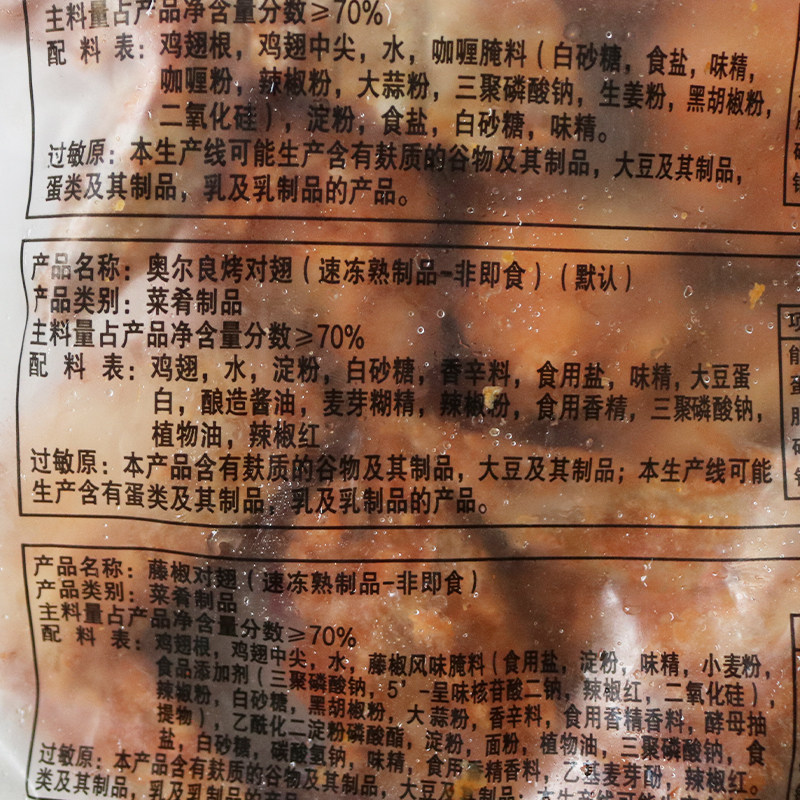 主料量占产品净含量分数≥70%
配 料 表：鸡翅根，鸡翅中尖，水，咖喱腌料（白砂糖，食盐，味精，
咖喱粉，辣椒粉，大蒜粉，三聚磷酸钠，生姜粉，黑胡椒粉，
二氧化硅），淀粉，食盐，白砂糖，味精。
过敏原：本生产线可能生产含有麸质的谷物及其制品，大豆及其制品，
蛋类及其制品，乳及乳制品的产品。
产品名称：奥尔良烤对翅（速冻熟制品-非即食）（默认）
产品类别：菜肴制品
主料量占产品净含量分数≥70%
配 料 表：鸡翅，水，淀粉，白砂糖，香辛料，食用盐，味精，大豆蛋
白，酿造酱油，麦芽糊精，辣椒粉，食用香精，三聚磷酸钠，
植物油，辣椒红
过敏原：本产品含有麸质的谷物及其制品，大豆及其制品；本生产线可能
生产含有蛋类及其制品，乳及乳制品的产品。
产品名称：藤椒对翅（速冻熟制品-非即食）
产品类别：菜肴制品
主料量占产品净含量分数≥70%
配 料 表：鸡翅根，鸡翅中尖，水，藤椒风味腌料（食用盐，淀粉，味精，小麦粉，
食品添加剂（三聚磷酸钠，5'-呈味核苷酸二钠，辣椒红，二氧化硅），
辣椒粉，白砂糖，黑胡椒粉，大蒜粉，香辛料，食用香精香料，酵母抽
提物），乙酰化二淀粉磷酸酯，淀粉，面粉，植物油，三聚磷酸钠，食
盐，白砂糖，碳酸氢钠，味精，食用香精香料，乙基麦芽酚，辣椒红。
过敏原：本产品含有麸质的谷物及其制品，大豆及其制品；本生产线可能
类及其制品，乳及乳制品的产品